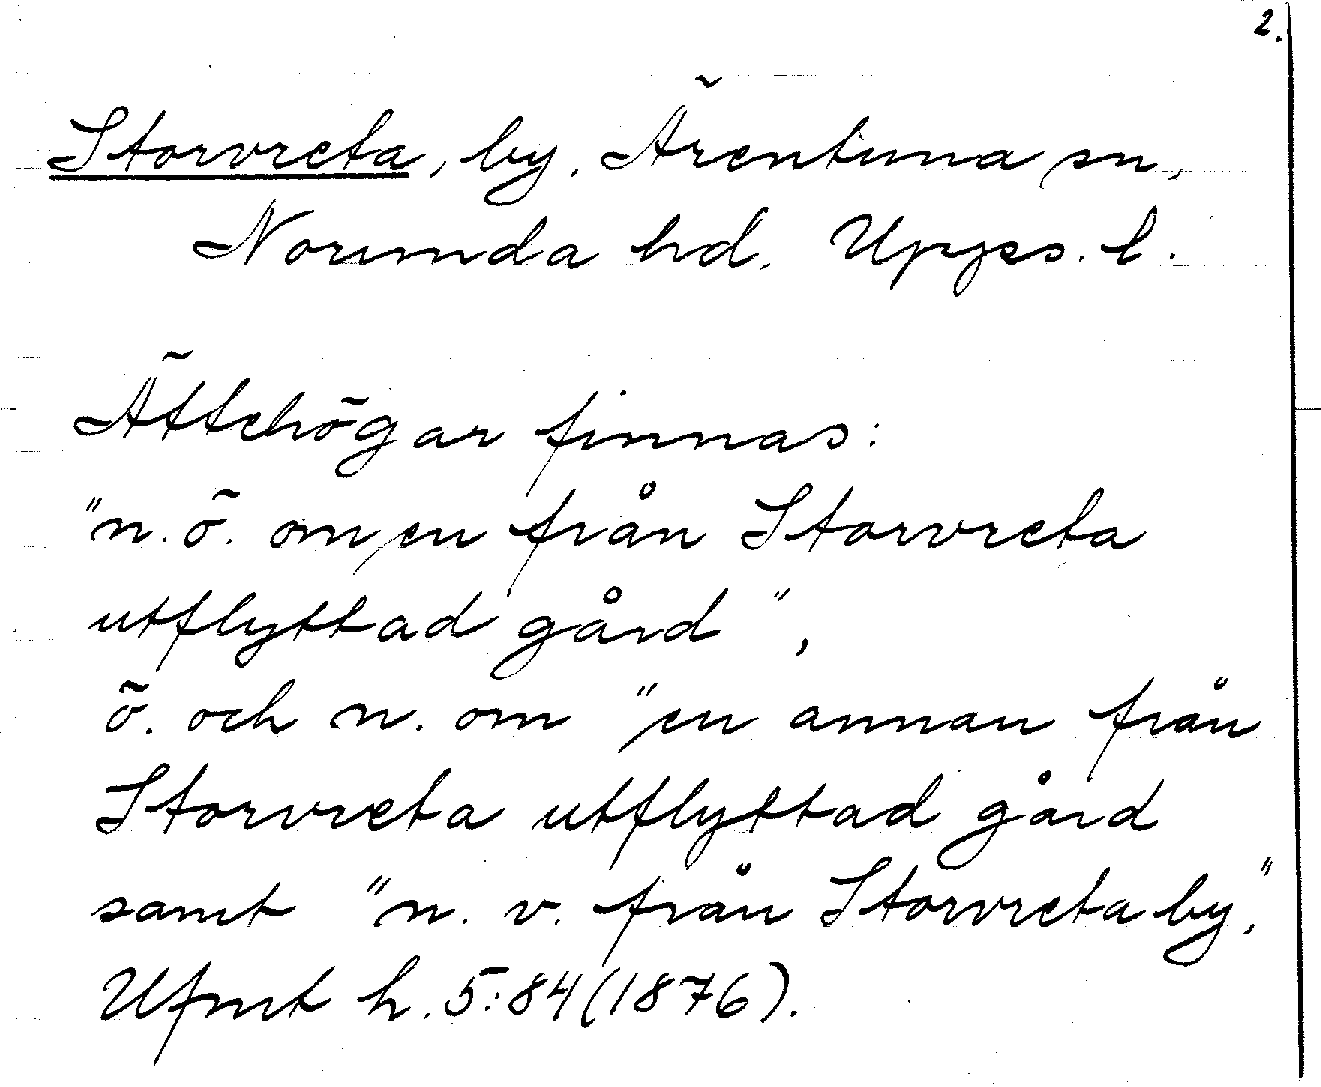 2.
Storvreta, by, Ärentuna sn,
Norunda hd. Upps. l.
Ättehögar finnas:
"n.ö. om en från Storvreta
utflyttad gård",
ö. och n. om "en annan från
Storvreta utflyttad gård
samt "n. v. från Storvreta by."
Ufmt h. 5:84 (1876).